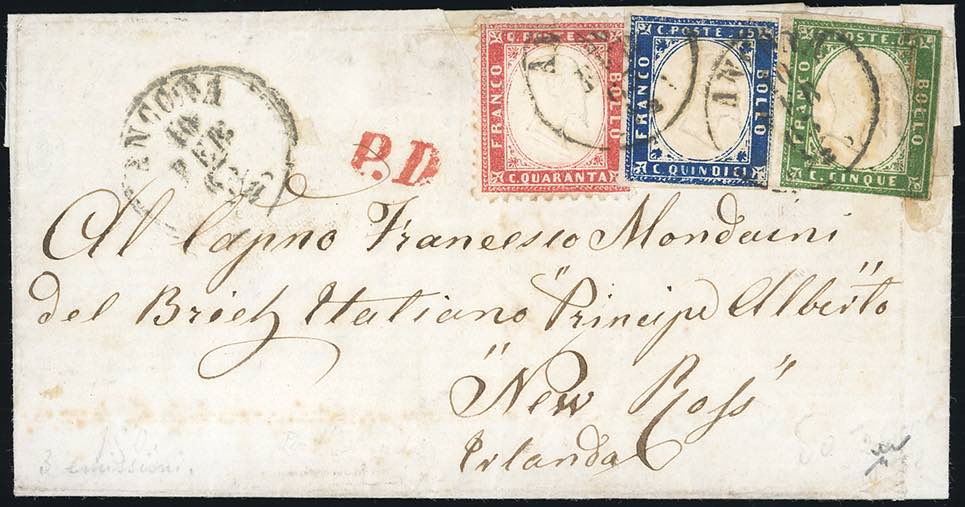 C. POSTE
FRANCO
BOLLO
C. QUARANTA
C. POSTE. 15
FRANCO
BOLLO
C. QUINDICI
POSTE. 05
FRANCO
BOLLO
C. CINQUE
ANCONA
10
P.D.
Al Capno Francesco Mondaini
del Brich Italiano "Principe Alberto"
"New Ross"
Irlanda
3 emissioni.